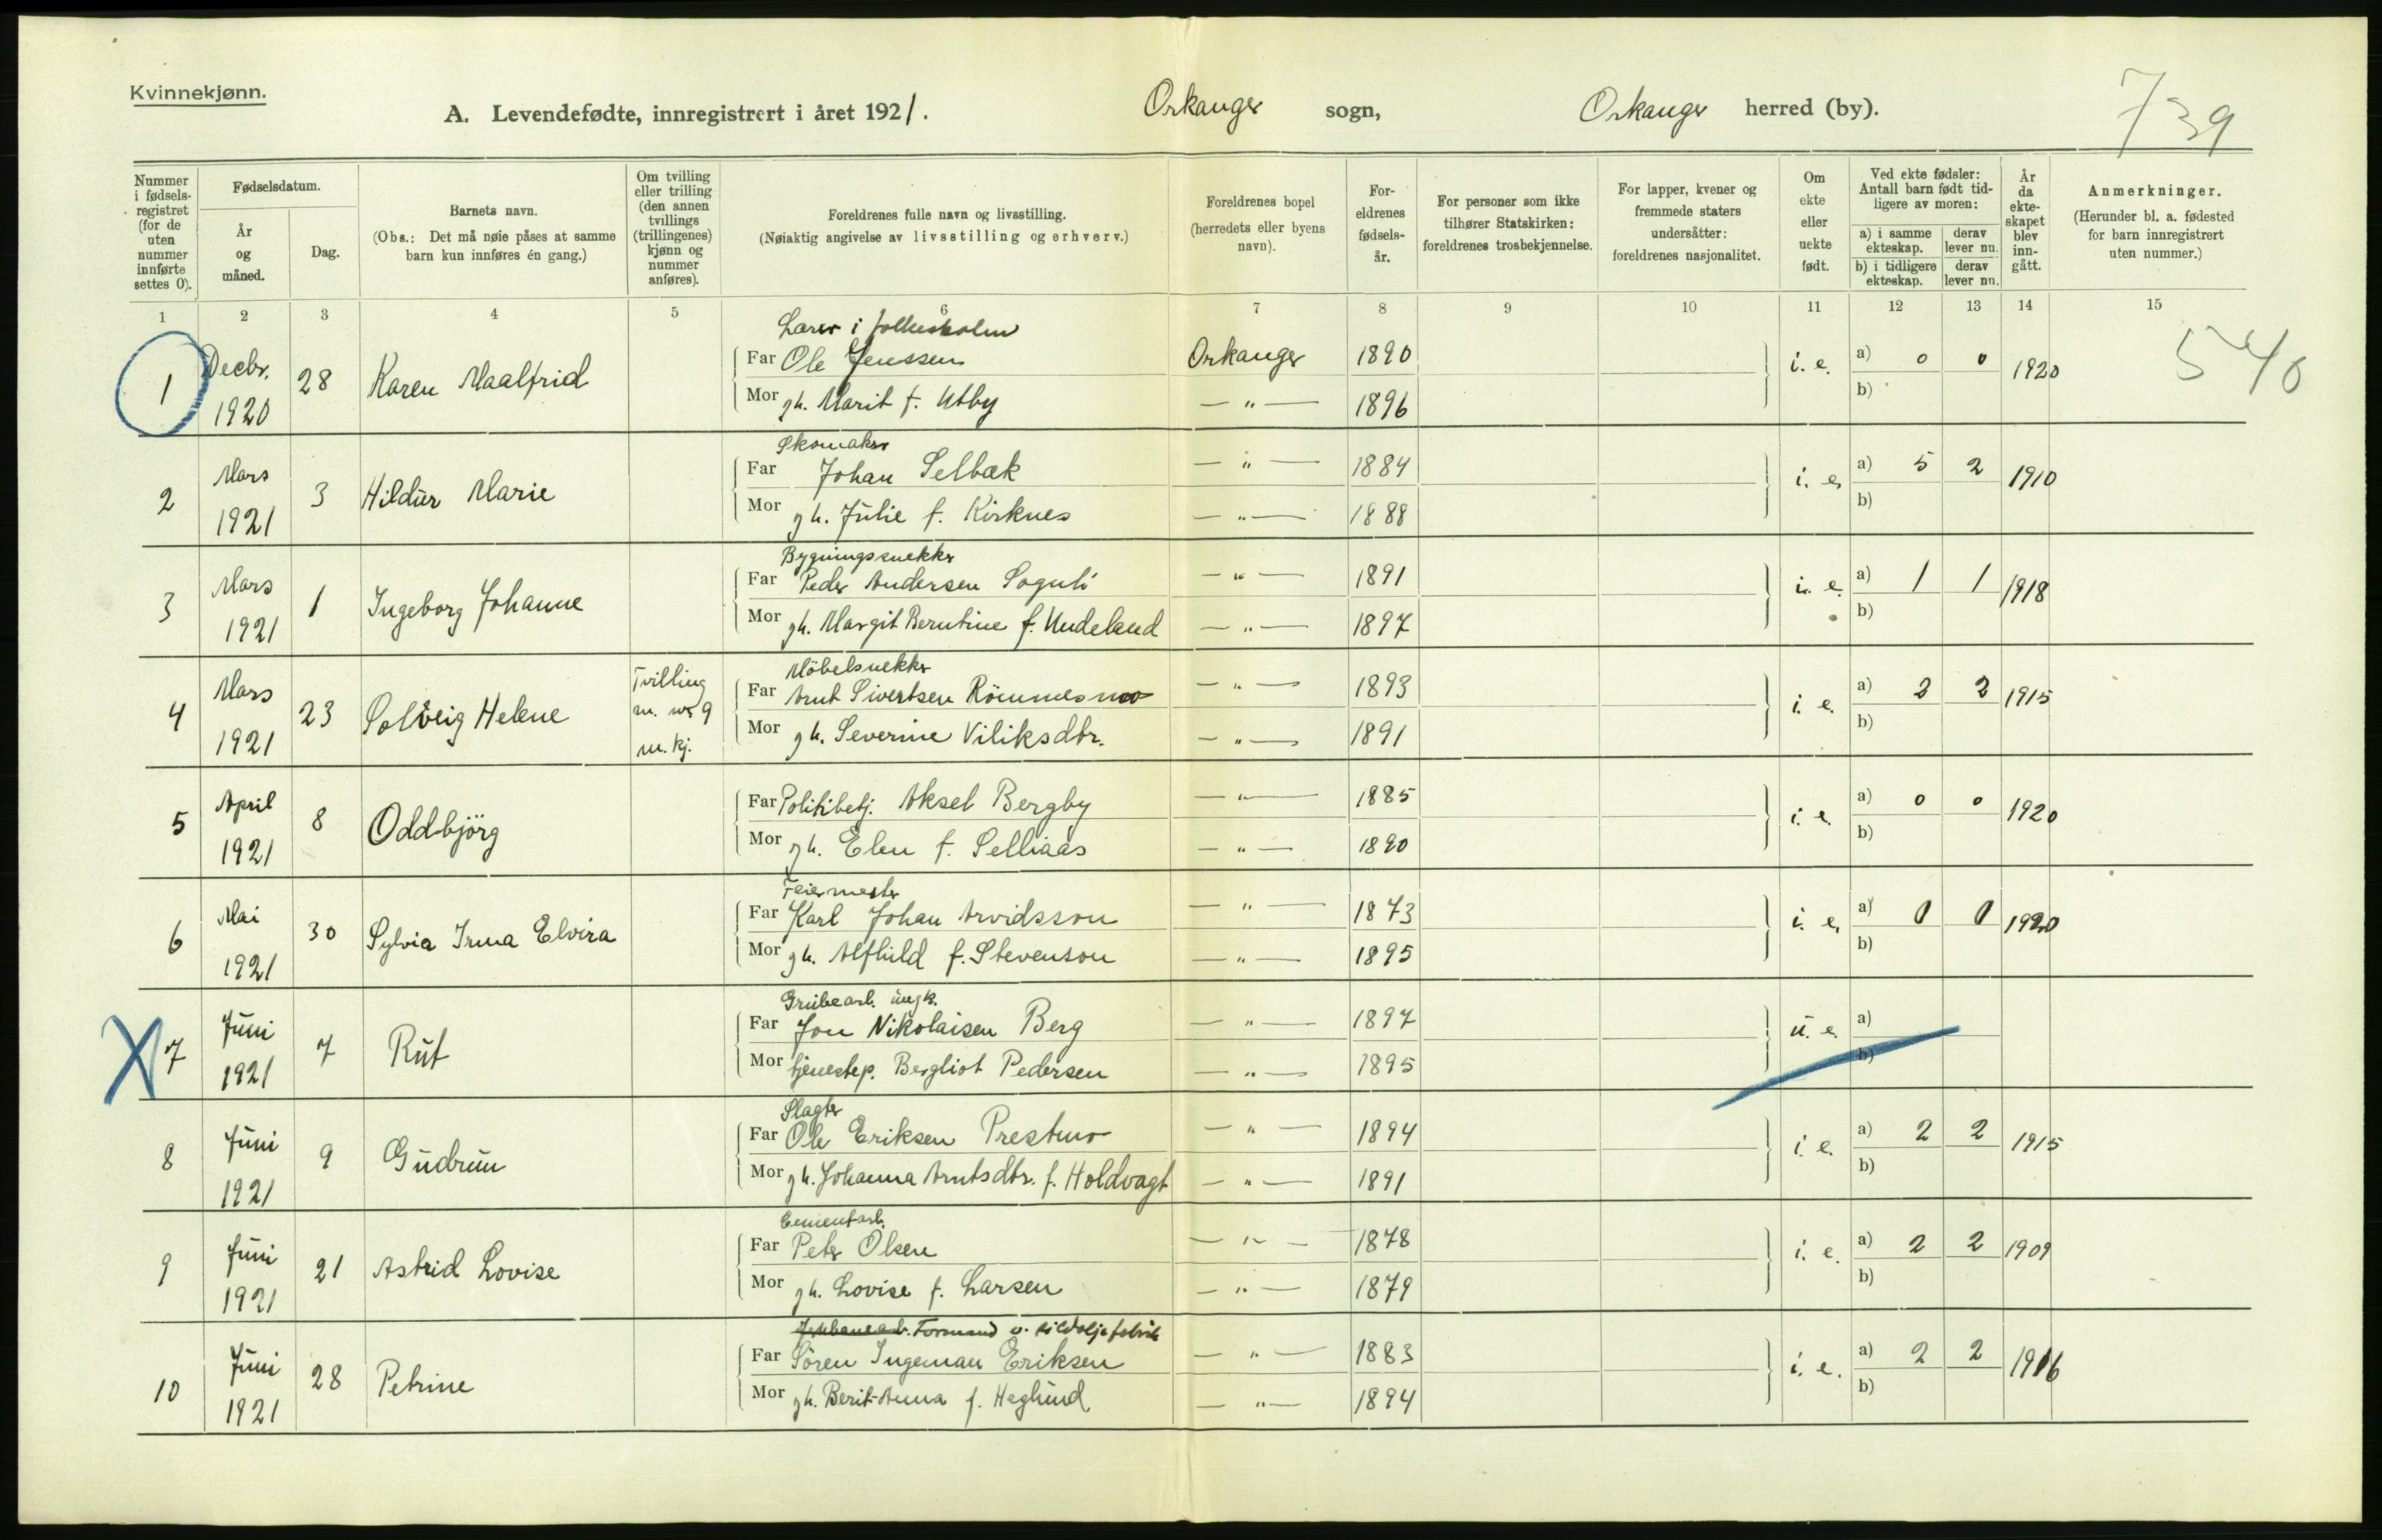 Kvinnekjønn.
A. Levendefødte, innregistrert i året 1921. Orkanger sogn, Orkanger herred (by). 739
Nummer i fødsels-registret (for de uten nummer innførte settes 0).
Fødselsdatum.
År og måned.
Dag.
Barnets navn.
(Obs.: Det må nøie påses at samme barn kun innføres én gang.)
Om tvilling eller trilling (den annen tvillings (trillingenes) kjønn og nummer anføres).
Foreldrenes fulle navn og livsstilling.
(Nøiaktig angivelse av livsstilling og erhverv.)
Foreldrenes bopel (herredets eller byens navn).
For-eldrenes fødsels-år.
For personer som ikke tilhører Statskirken: foreldrenes trosbekjennelse.
For lapper, kvener og fremmede staters undersåtter: foreldrenes nasjonalitet.
Om ekte eller uekte født.
Ved ekte fødsler: Antall barn født tid-ligere av moren:
a) i samme ekteskap. derav lever nu.
b) i tidligere ekteskap. derav lever nu.
År da ekte-skapet blev inn-gått.
Anmerkninger.
(Herunder bl. a. fødested for barn innregistrert uten nummer.)
1 2 3 4 5 6 7 8 9 10 11 12 13 14 15
Lærer i folkeskolen
1 Decbr. 1920 28 Karen Maalfrid Far Ole Jenssen Orkanger 1890 i. e. a) 0 0 1920 540
Mor gh. Marit f. Utby — " — 1896 b)
Skomaker
2 Mars 1921 3 Hildur Marie Far Johan Selbæk — " — 1884 i. e. a) 5 2 1910
Mor gh. Julie f. Kirknes — " — 1888 b)
Bygningssnekker
3 Mars 1921 1 Ingeborg Johanne Far Peder Andersen Sognli — " — 1891 i. e. a) 1 1 1918
Mor gh. Margit Berntine f. Undeland — " — 1897 b)
Möbelsnekker
4 Mars 1921 23 Solveig Helene Tvilling m. nr 9 m. kj. Far Arnt Sivertsen Römmesmo — " — 1893 i. e. a) 2 2 1915
Mor gh. Severine Viliksdtr. — " — 1891 b)
5 April 1921 8 Oddbjörg Far Politibetj. Aksel Bergby — " — 1885 i. e. a) 0 0 1920
Mor gh. Elen f. Selliaas — " — 1890 b)
Feiermester
6 Mai 1921 30 Sylvia Irma Elvira Far Karl Johan Arvidsson — " — 1873 i. e. a) 0 0 1920
Mor gh. Alfhild f. Stevenson — " — 1895 b)
Grubearb. ungk.
7 Juni 1921 7 Rut Far Jon Nikolaisen Berg — " — 1897 u. e. a)
Mor tjenestep. Bergliot Pedersen — " — 1895 b)
Slagter
8 Juni 1921 9 Gudrun Far Ole Eriksen Prestmo — " — 1894 i. e. a) 2 2 1915
Mor gh. Johanna Arntsdtr. f. Holdvagt — " — 1891 b)
Cementarb.
9 Juni 1921 21 Astrid Lovise Far Peter Olsen — " — 1878 i. e. a) 2 2 1909
Mor gh. Lovise f. Larsen — " — 1879 b)
Formand v. sildoljefabrik
10 Juni 1921 28 Petrine Far Sören Ingeman Eriksen — " — 1883 i. e. a) 2 2 1916
Mor gh. Berit-Anna f. Heglund — " — 1894 b)